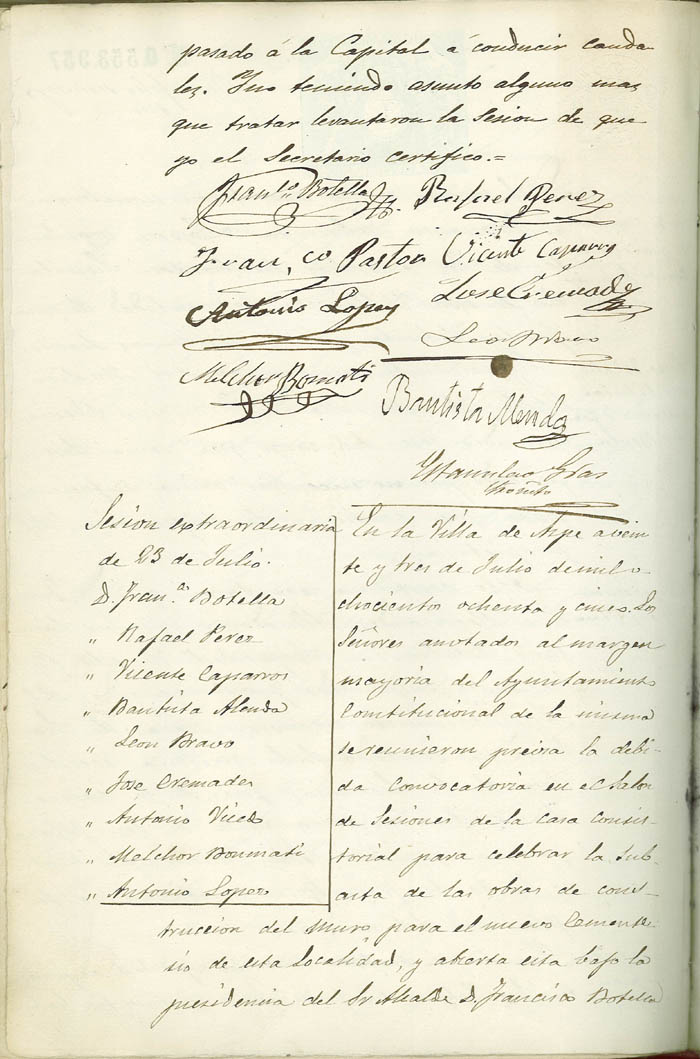 pasado á la Capital á conducir cauda-
les. Y no teniendo asunto alguno mas
que tratar levantaron la Sesion de que
yo el Secretario certifico.=
Fran.co Botella Rafael Perez
Fran.co Pastor Vicente Caparros
Antonio Lopez Jose Cremades
Leon Bravo
Melchor Bomati
Bautista Alenda
Estanislao Gras
Sesion extraordinaria
de 23 de Julio.
D. Fran.co Botella
" Rafael Perez
" Vicente Caparros
" Bautista Alenda
" Leon Bravo
" Jose Cremades
" Antonio Vicedo
" Melchor Boumati
" Antonio Lopez
En la Villa de Aspe a vein-
te y tres de Julio de mil o-
chocientos ochenta y cinco. Los
Señores anotados al margen
mayoria del Ayuntamiento
Constitucional de la misma
se reunieron previa la debi-
da convocatoria en el Salon
de Sesiones de la casa consis-
torial para celebrar la sub-
asta de las obras de cons-
truccion del muro para el nuevo Cemente-
rio de esta localidad, y abierta esta bajo la
presidencia del Sr Alcalde D. Francisco Botella